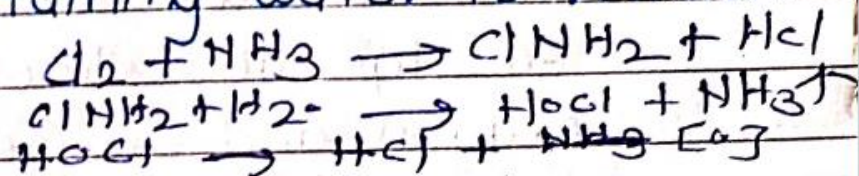 Cl2 + NH3 → ClNH2 + Hcl
ClNH2 + H2O → HOCl + NH3↑
HOCl → HCl + [O]